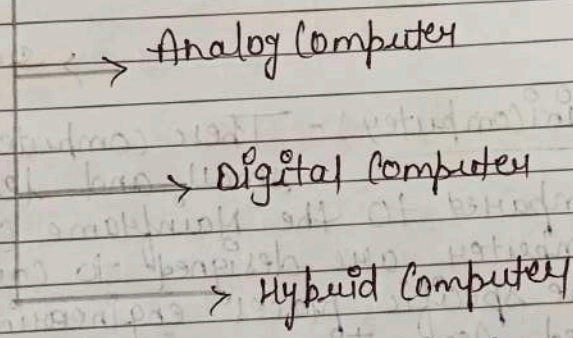 → Analog Computer
→ Digital Computer
→ Hybrid Computer